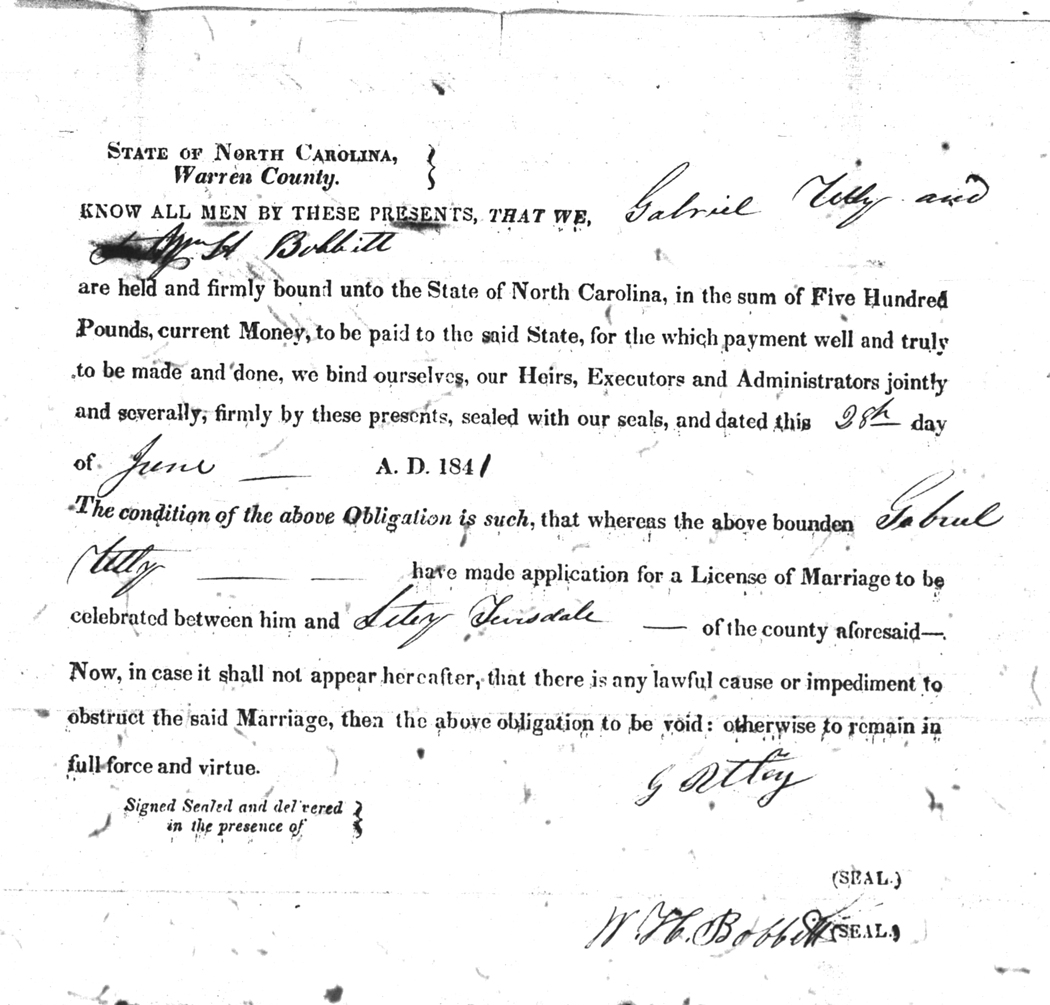 STATE OF NORTH CAROLINA,
Warren County.
KNOW ALL MEN BY THESE PRESENTS, THAT WE, Gabriel Utly and
Wm H Bobbitt
are held and firmly bound unto the State of North Carolina, in the sum of Five Hundred
Pounds, current Money, to be paid to the said State, for the which payment well and truly
to be made and done, we bind ourselves, our Heirs, Executors and Administrators jointly
and severally, firmly by these presents, sealed with our seals, and dated this 28th day
of June A. D. 1841
The condition of the above Obligation is such, that whereas the above bounden Gabriel
Utly have made application for a License of Marriage to be
celebrated between him and of the county aforesaid—.
Now, in case it shall not appear hereafter, that there is any lawful cause or impediment to
obstruct the said Marriage, then the above obligation to be void: otherwise to remain in
full force and virtue.
G Utley
Signed Sealed and delivered
in the presence of
(SEAL.)
W. H. Bobbitt (SEAL.)